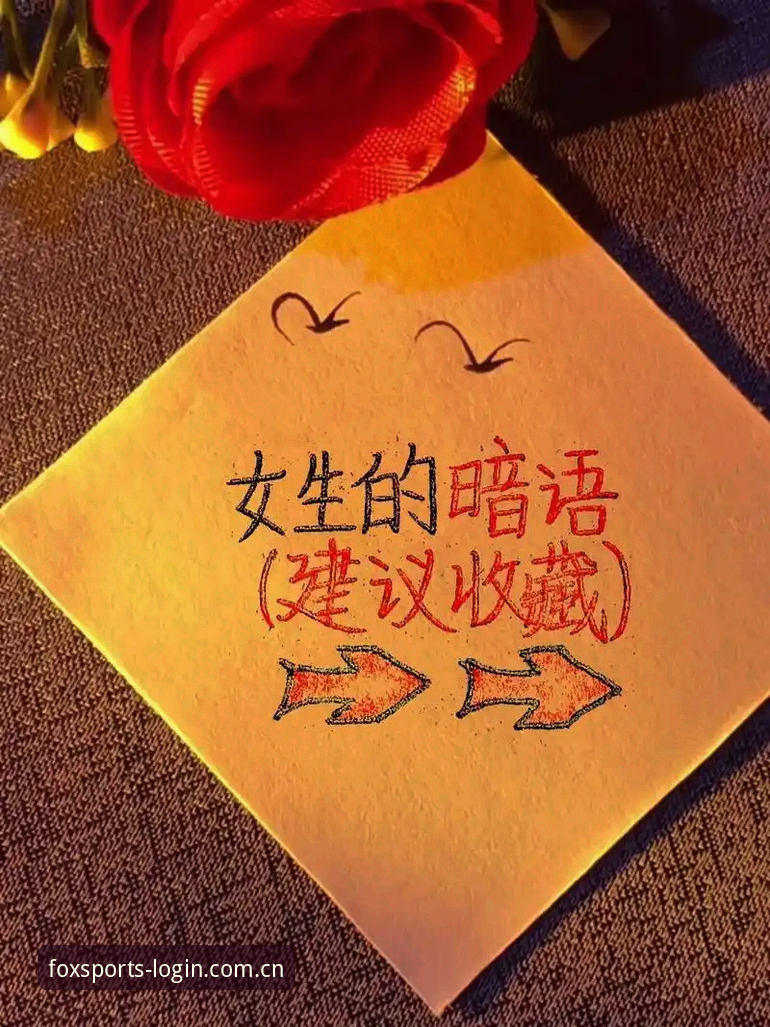 女生的暗语
(建议收藏)
foxsports-login.com.cn